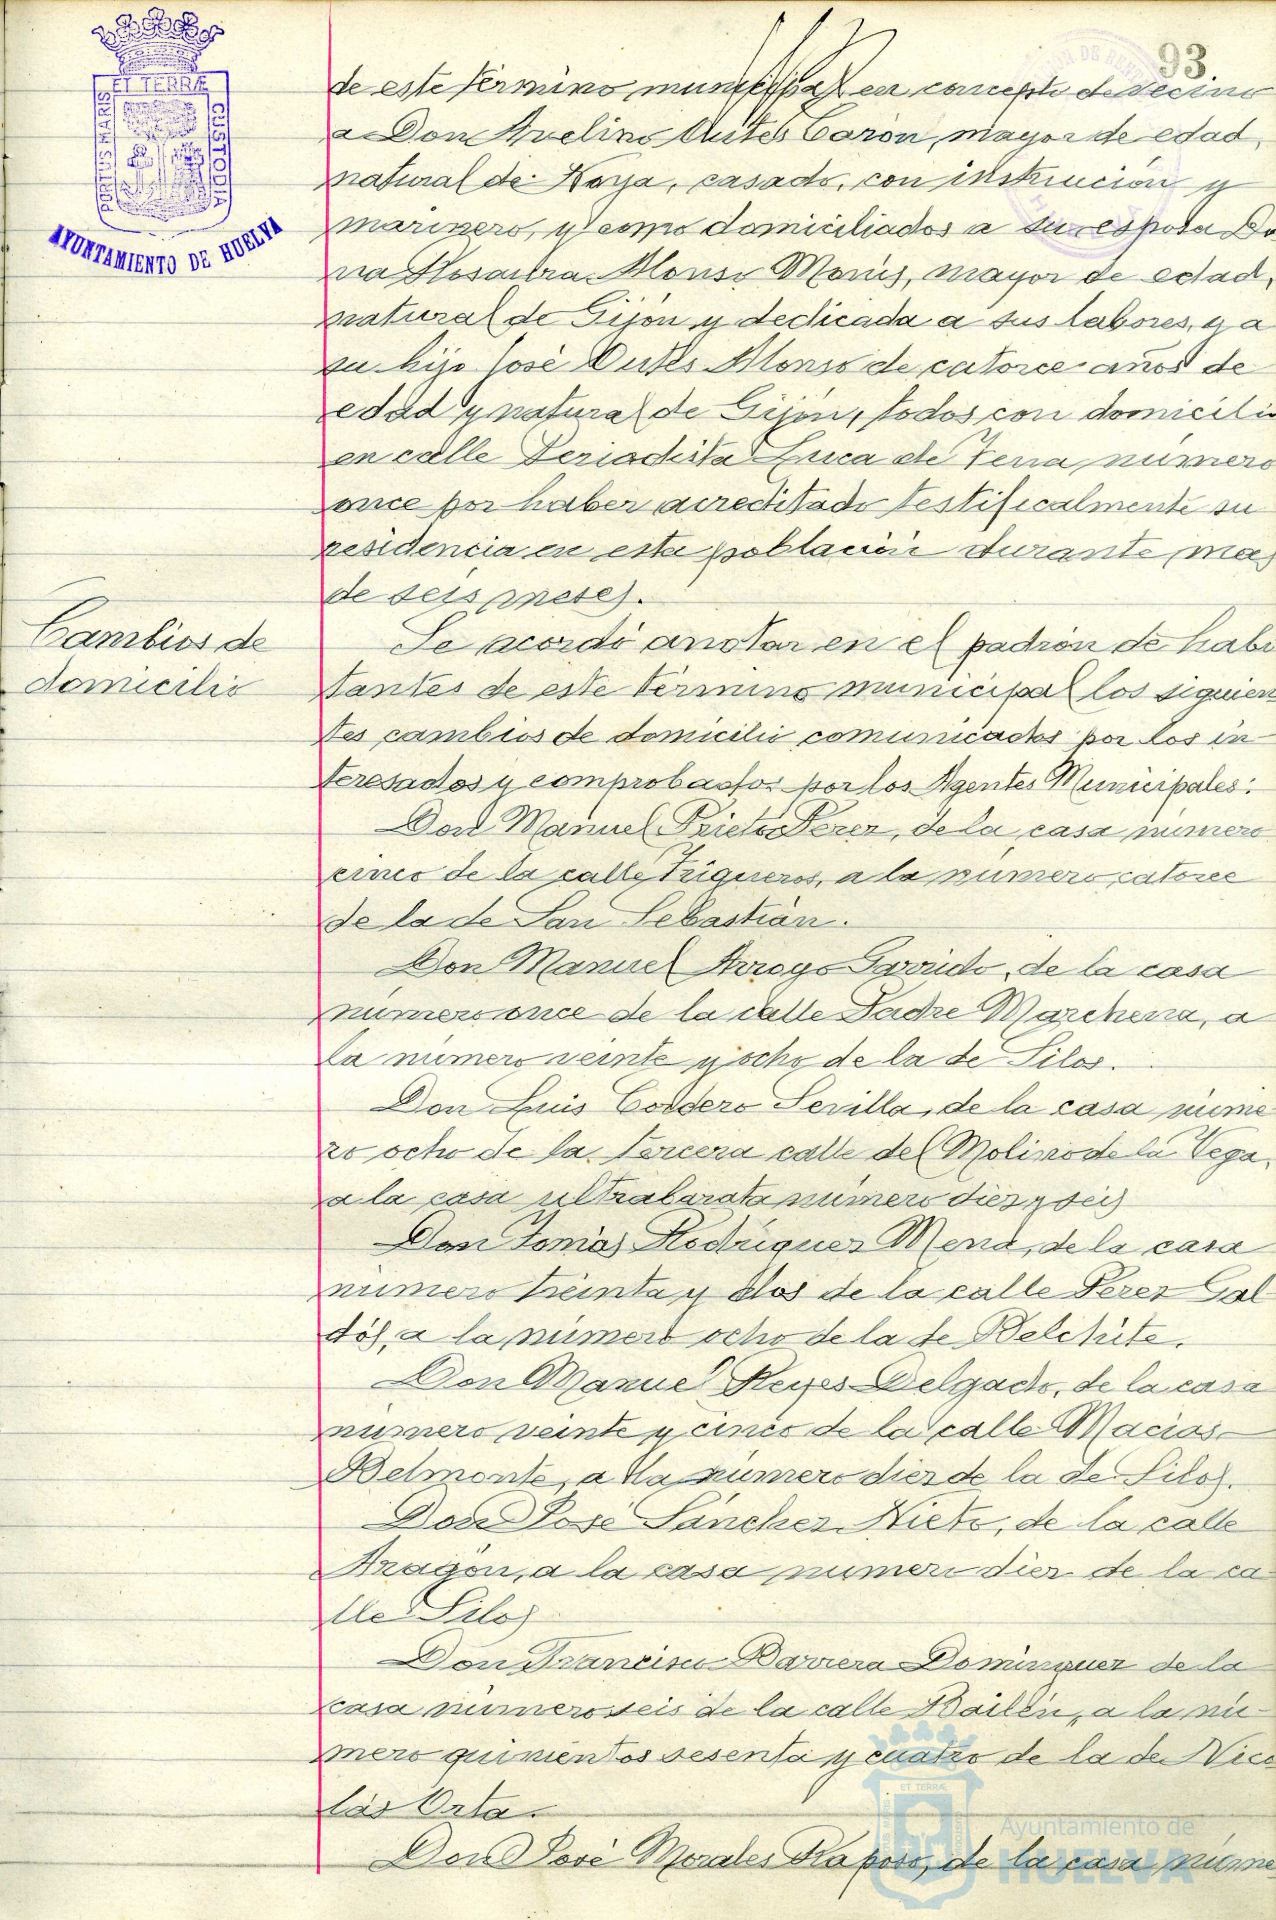 93
ET TERRÆ
PORTUS MARIS
CUSTODIA
AYUNTAMIENTO DE HUELVA
de este término municipal en concepto de vecino
a Don Avelino Outes Carón, mayor de edad,
natural de Noya, casado, con instrucción y
marinero, y como domiciliados a su esposa Do
ña Rosaura Alonso Monis, mayor de edad,
natural de Gijón y dedicada a sus labores, y a
su hijo José Outes Alonso de catorce años de
edad y natural de Gijón, todos con domicilio
en calle Periodista Luca de Tena, número
once por haber acreditado testificalmente su
residencia en esta población durante mas
de seis meses.
Cambios de
domicilio
Se acordó anotar en el padrón de habi
tantes de este término municipal los siguien
tes cambios de domicilio comunicados por los in
teresados y comprobados por los Agentes Municipales:
Don Manuel Prieto Perez, de la casa número
cinco de la calle Trigueros, a la número catorce
de la de San Sebastián.
Don Manuel Arroyo Garrido, de la casa
número once de la calle Padre Marchena, a
la número veinte y ocho de la de Silos.
Don Luis Cordero Sevilla, de la casa núme
ro ocho de la tercera calle del Molino de la Vega,
a la casa ultrabarata número diez y seis
Don Tomás Rodríguez Mena, de la casa
número treinta y dos de la calle Perez Gal
dós, a la número ocho de la de Belchite.
Don Manuel Reyes Delgado, de la casa
número veinte y cinco de la calle Macias
Belmonte, a la número diez de la de Silos.
Don José Sánchez Nieto, de la calle
Aragón, a la casa numero diez de la ca
lle Silos
Don Francisco Barrera Dominguez de la
casa número seis de la calle Bailén, a la nú
mero quinientos sesenta y cuatro de la de Nico
lás Orta.
Don José Morales Raposo, de la casa núme
ET TERRÆ
Ayuntamiento de
HUELVA